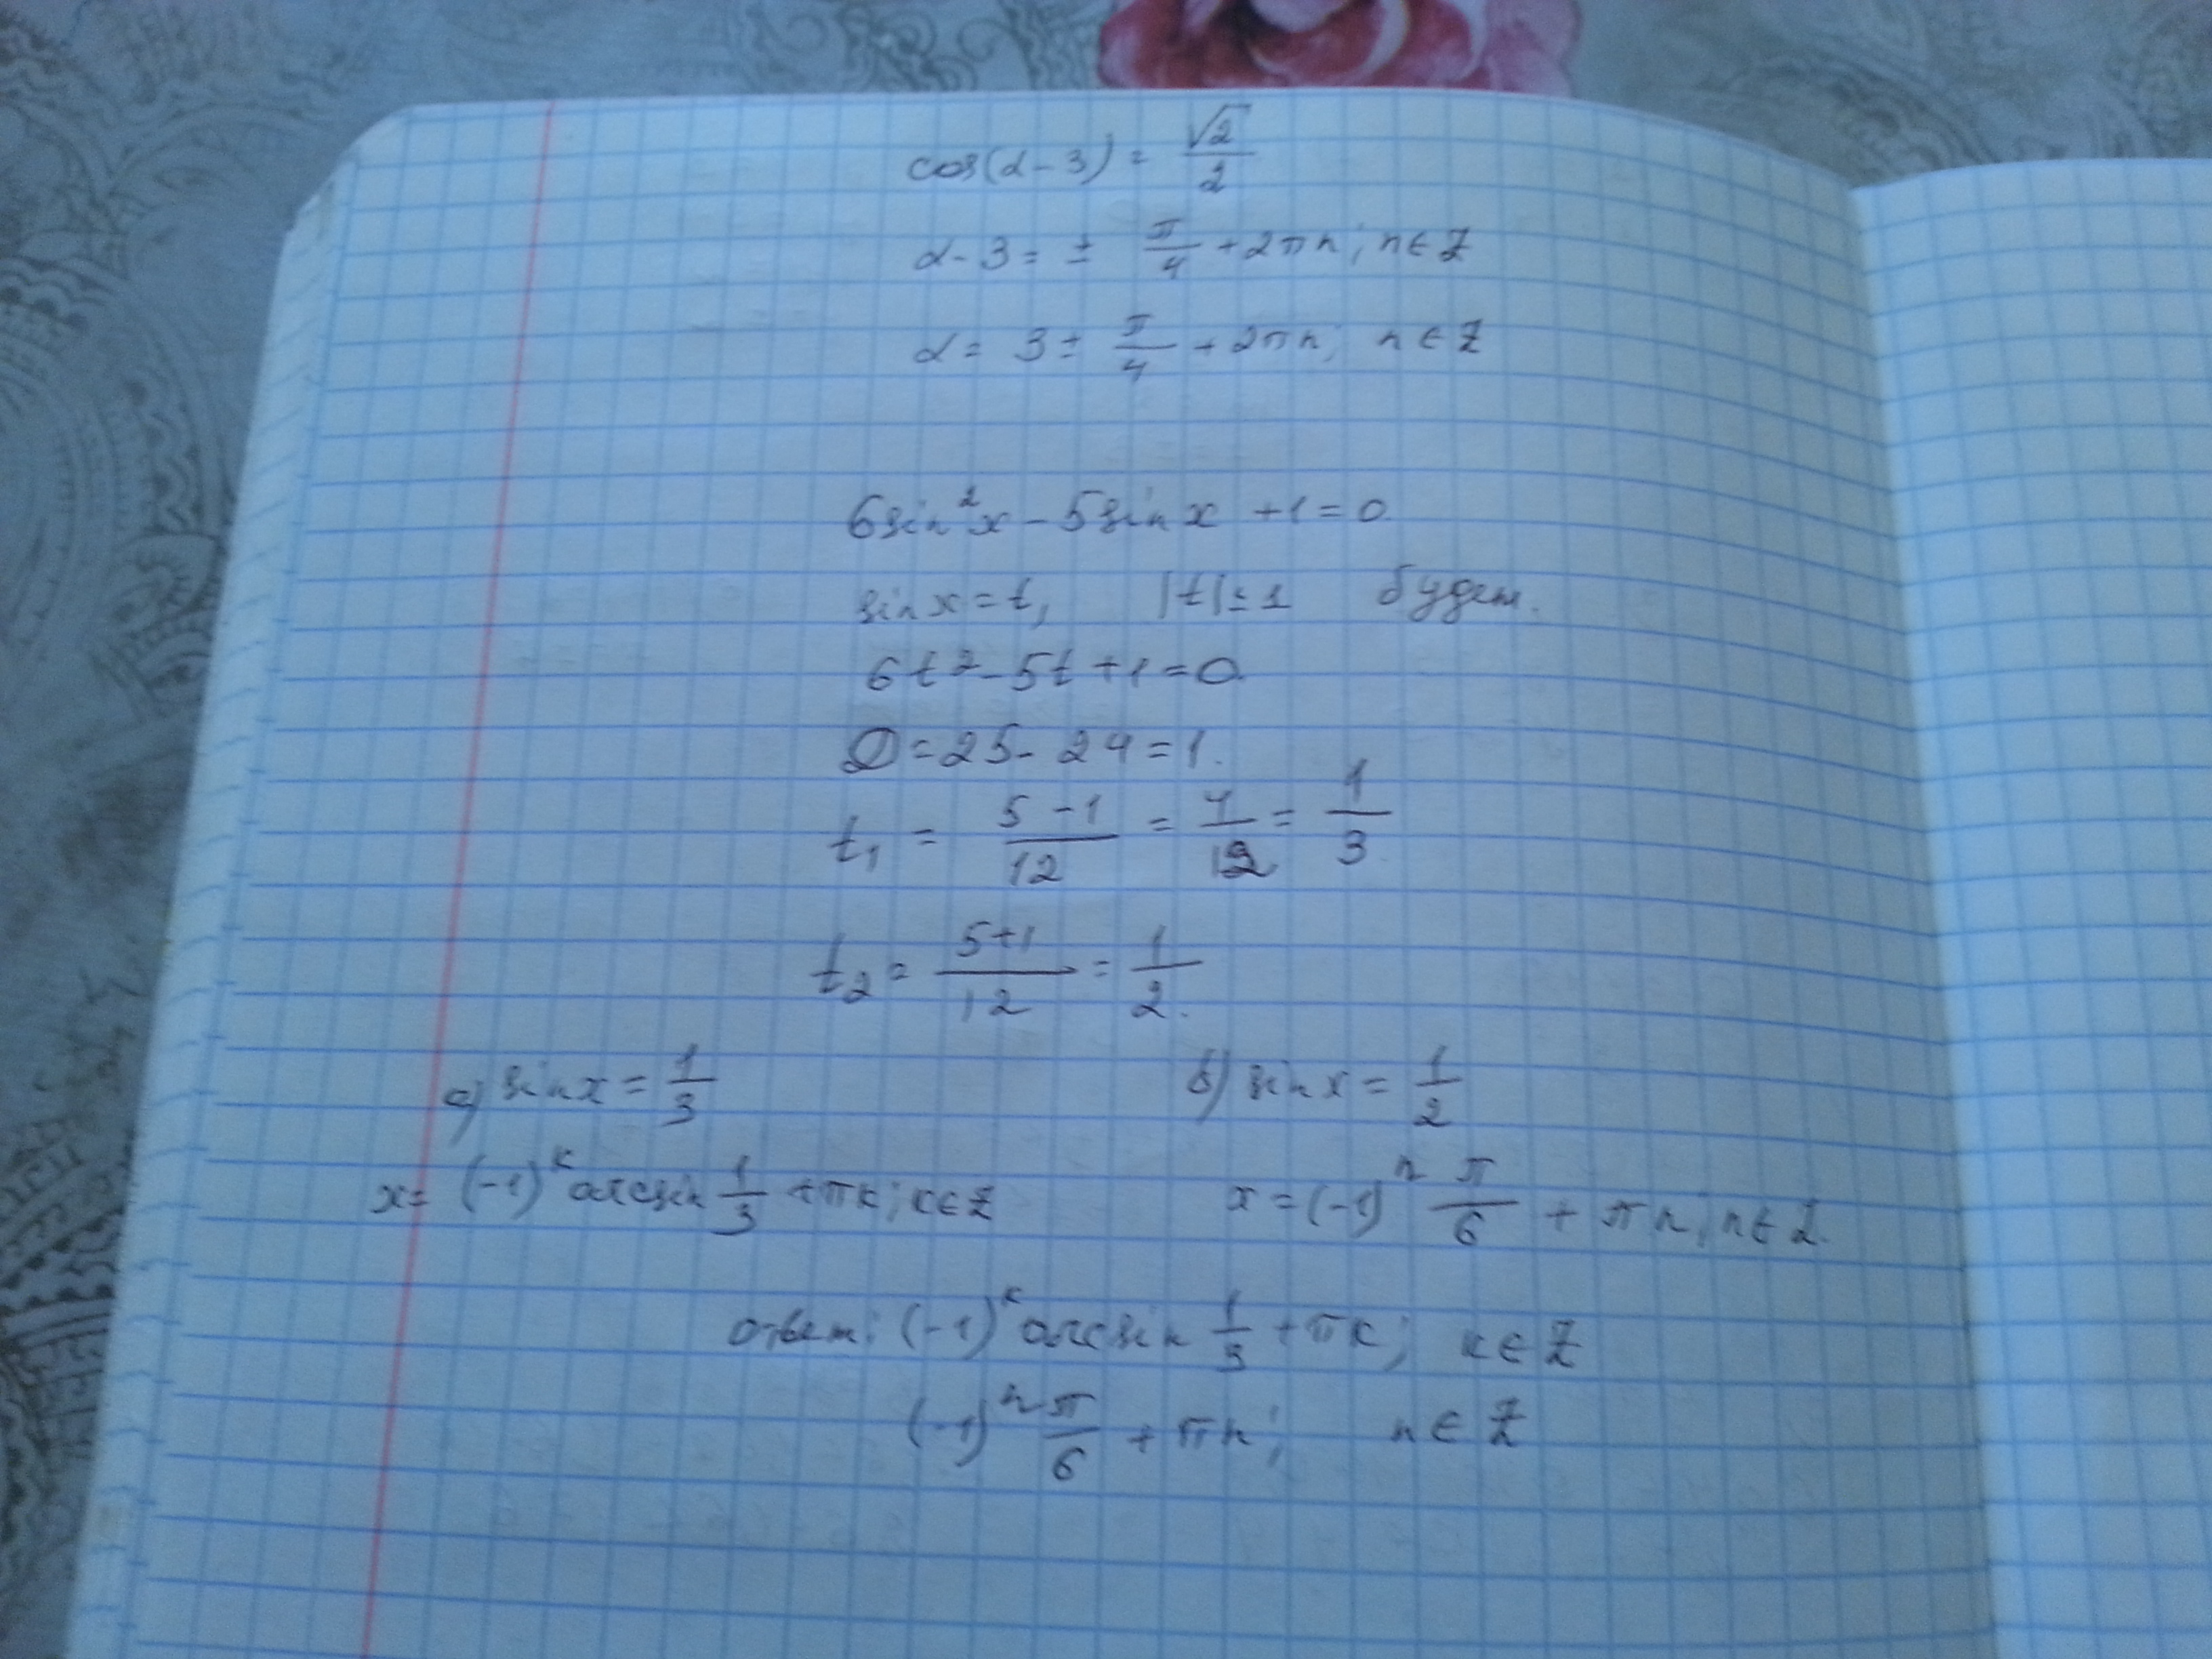 cos(α-3) = √2/2
α-3 = ± π/4 + 2πn; n∈Z
α = 3 ± π/4 + 2πn; n∈Z
6sin²x - 5sinx + 1 = 0
sinx = t, |t| ≤ 1 будет.
6t² - 5t + 1 = 0
D = 25 - 24 = 1.
t₁ = (5-1)/12 = 4/12 = 1/3
t₂ = (5+1)/12 = 1/2.
а) sinx = 1/3 б) sinx = 1/2
x = (-1)ᵏ arcsin 1/3 + πk; k∈Z x = (-1)ⁿ π/6 + πn; n∈Z.
ответ: (-1)ᵏ arcsin 1/3 + πk; k∈Z
(-1)ⁿ π/6 + πn; n∈Z